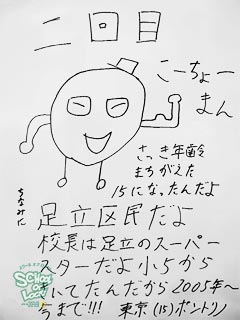 二回目
こーちょー
まん
さっき年齢
まちがえた
15になったんだよ
ちなみに
足立区民だよ
校長は足立のスーパー
スターだよ小5から
いてたんだから2005年〜
今まで!!!
東京(15)ポントリノ
SCHOOL OF LOCK!